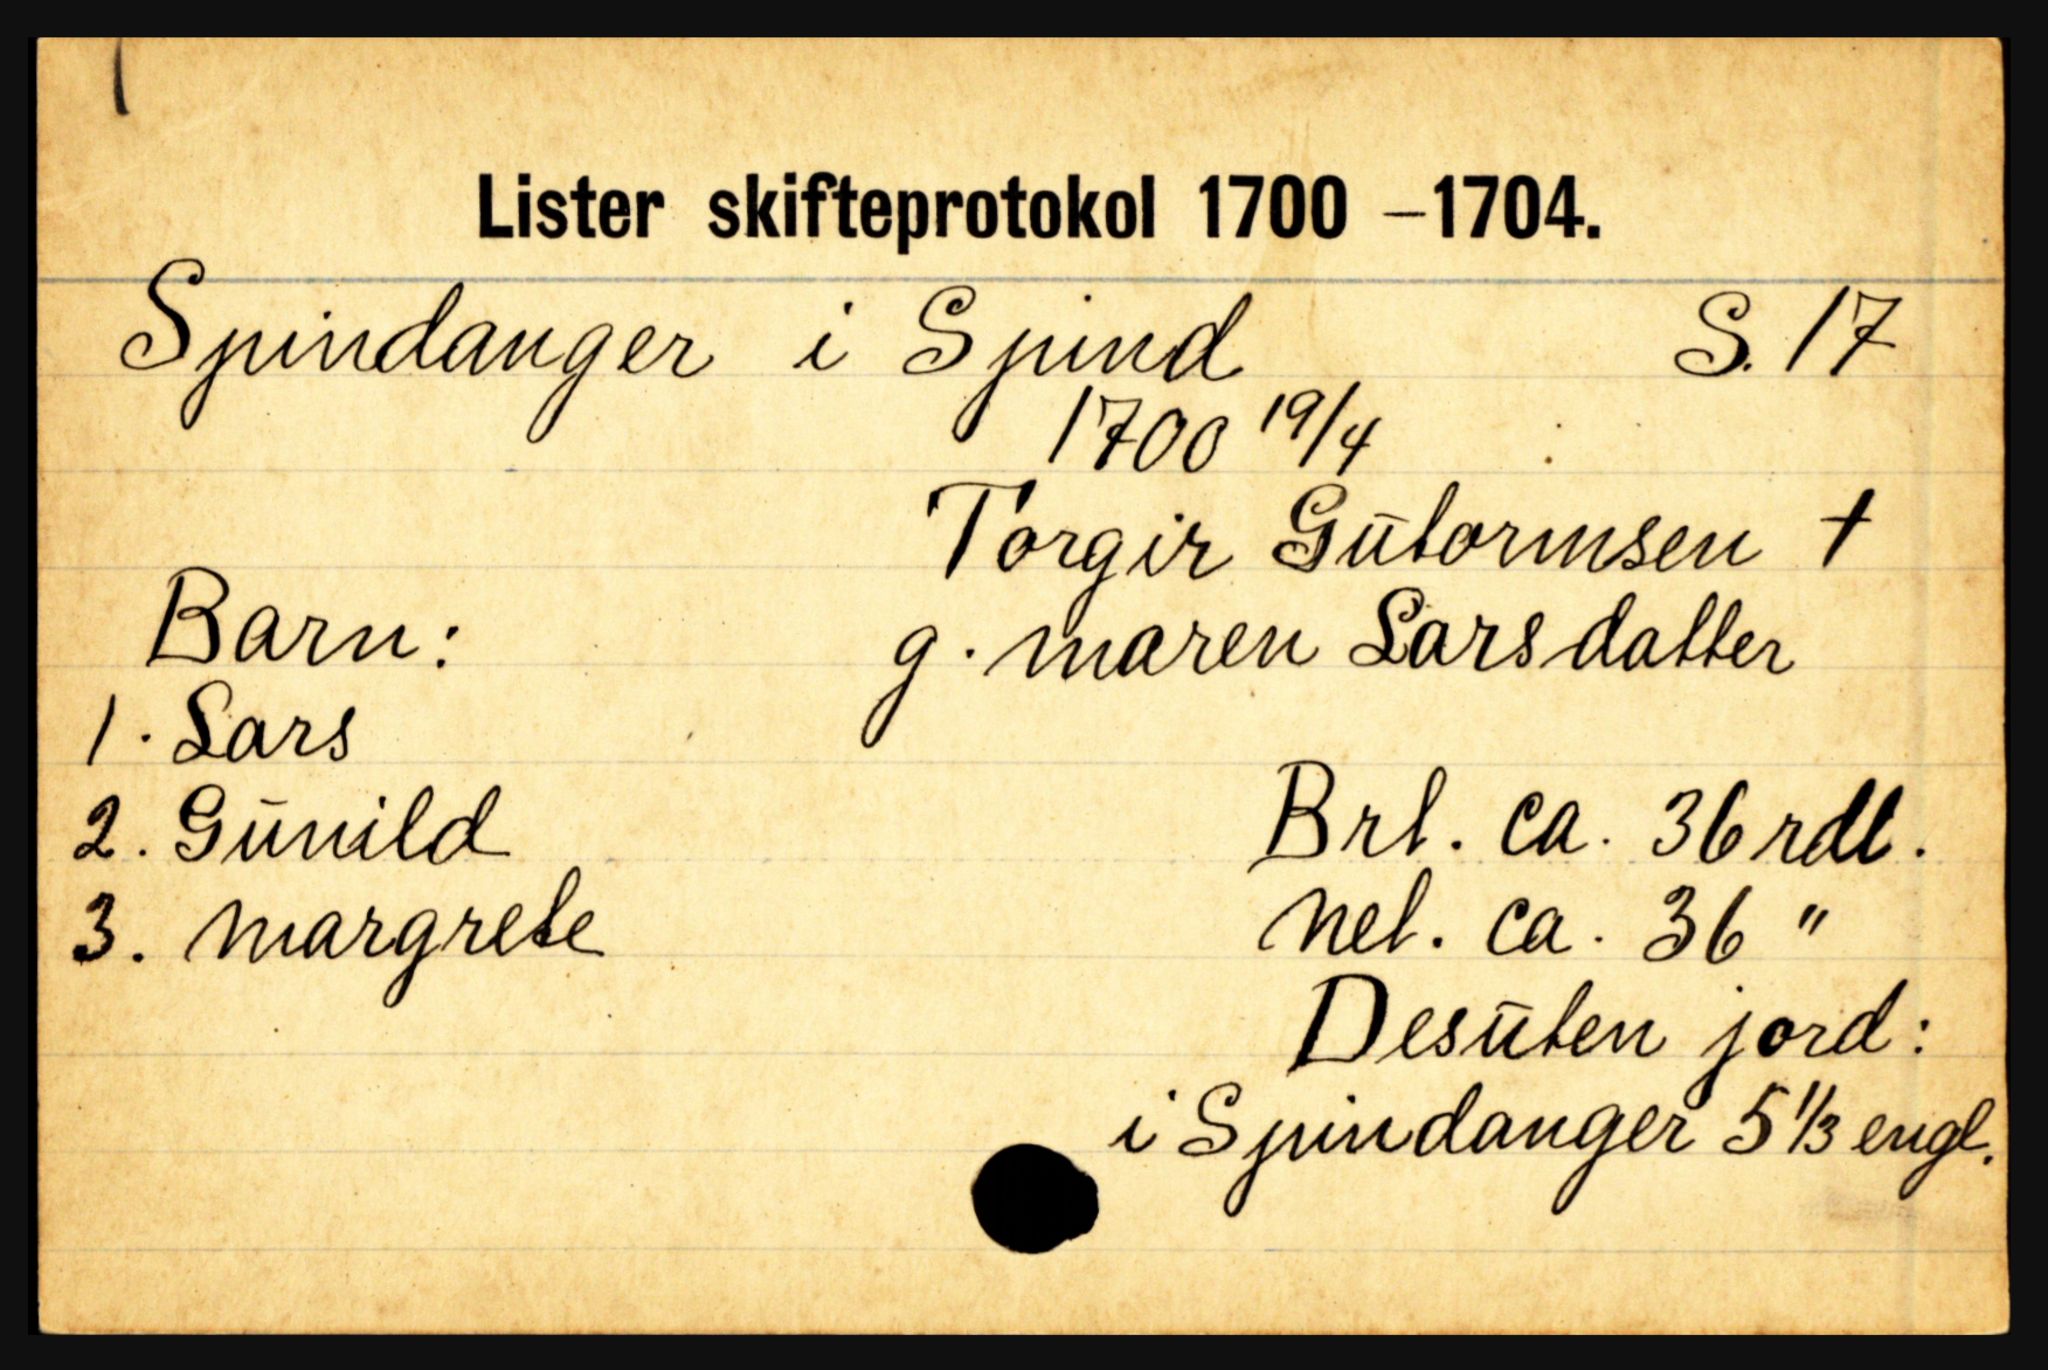 Lister skifteprotokol 1700 – 1704.
Spindanger i Spind S. 17
1700 19/4
Torgir Gutormsen †
Barn: g. Maren Larsdatter
1. Lars
2. Gunild Brt. ca. 36 rdl.
3. Margrete Net. ca. 36 "
Desuten jord:
i Spindanger 5 1/3 engl.